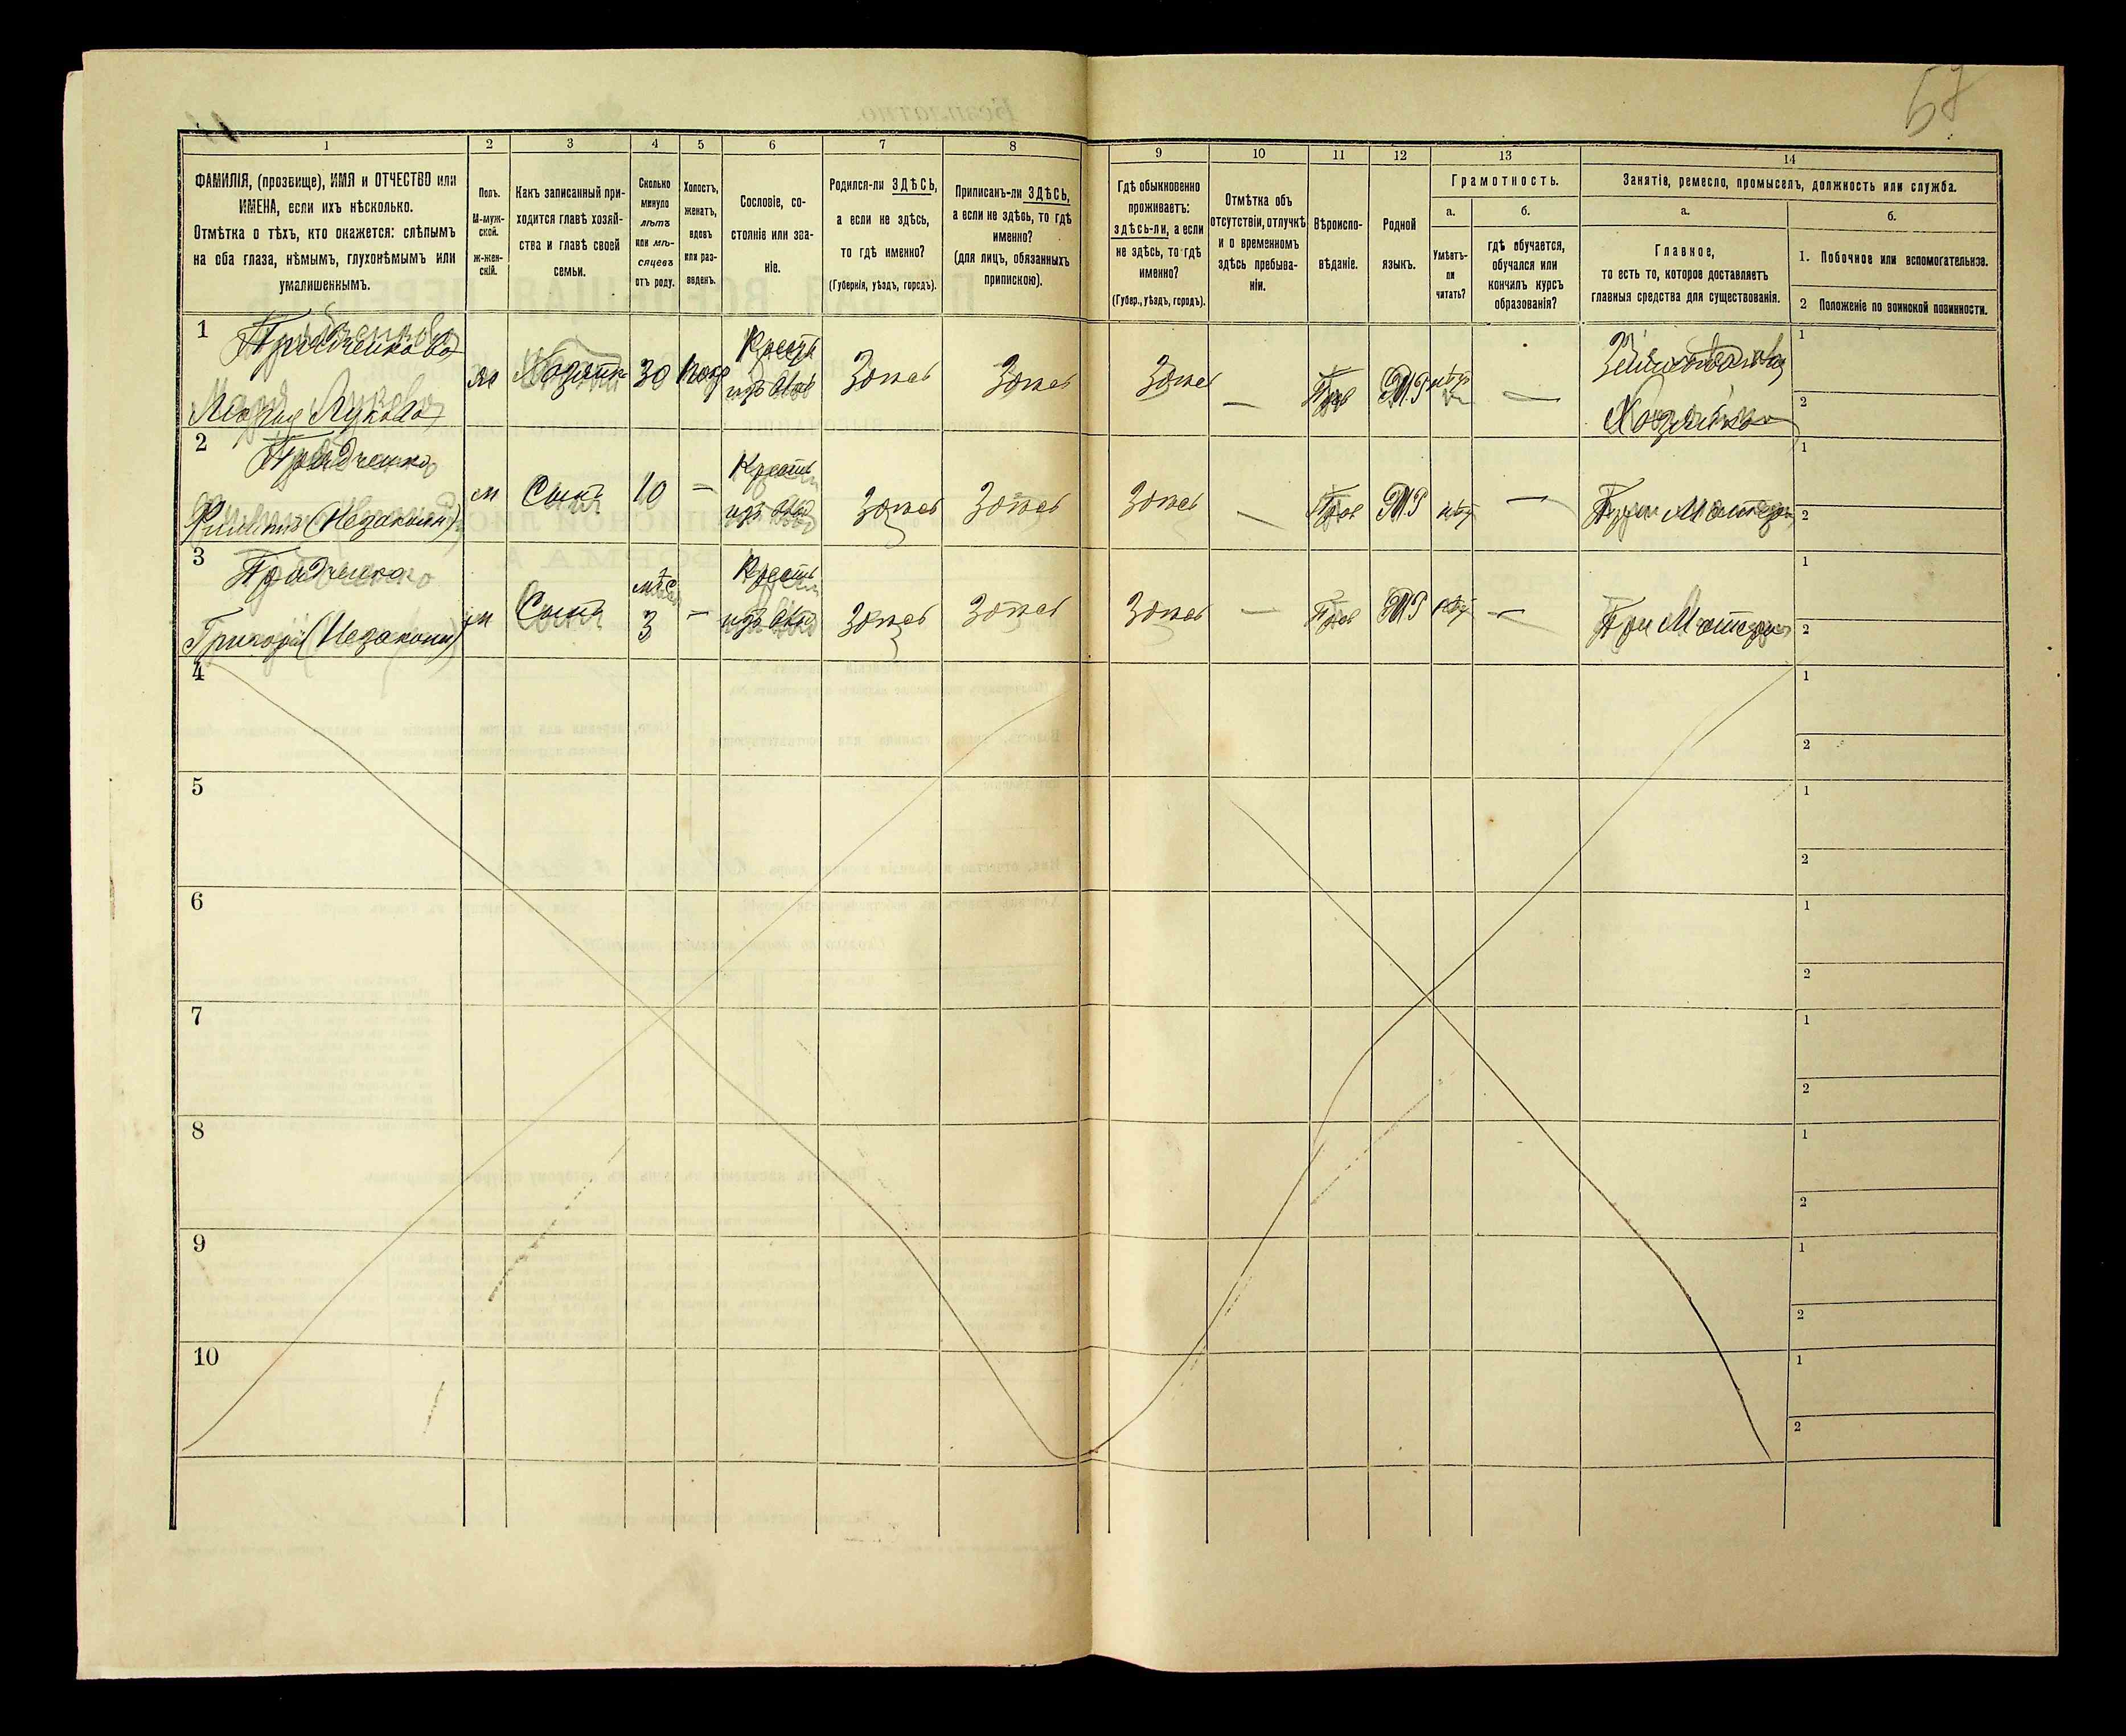 57
1 2 3 4 5 6 7 8 9 10 11 12 13 14
ФАМИЛІЯ, (прозвище), ИМЯ и ОТЧЕСТВО или
ИМЕНА, если ихъ нѣсколько.
Отмѣтка о тѣхъ, кто окажется: слѣпымъ
на оба глаза, нѣмымъ, глухонѣмымъ или
умалишеннымъ.
Полъ.
М-муж-
ской.
ж-жен-
скій.
Какъ записанный при-
ходится главѣ хозяй-
ства и главѣ своей
семьи.
Сколько
минуло
лѣтъ
или мѣ-
сяцевъ
отъ роду.
Холостъ,
женатъ,
вдовъ
или раз-
веденъ.
Сословіе, со-
стояніе или зва-
ніе.
Родился-ли ЗДѢСЬ,
а если не здѣсь,
то гдѣ именно?
(Губернія, уѣздъ, городъ).
Приписанъ-ли ЗДѢСЬ,
а если не здѣсь, то гдѣ
именно?
(для лицъ, обязанныхъ
припискою).
Гдѣ обыкновенно
проживаетъ:
здѣсь-ли, а если
не здѣсь, то гдѣ
именно?
(Губер., уѣздъ, городъ).
Отмѣтка объ
отсутствіи, отлучкѣ
и о временномъ
здѣсь пребыва-
ніи.
Вѣроиспо-
вѣданіе.
Родной
языкъ.
Грамотность.
а.
Умѣетъ-
ли
читать?
б.
гдѣ обучается,
обучался или
кончилъ курсъ
образованія?
Занятіе, ремесло, промыселъ, должность или служба.
а.
Главное,
то есть то, которое доставляетъ
главныя средства для существованія.
б.
1. Побочное или вспомогательное.
2 Положеніе по воинской повинности.
1
Марія Лукова
30
Крест
Здѣсь Здѣсь Здѣсь
—
Прав
М.Р
—
Хозяйка
1
2
2
м Сынъ 10 —
Филипъ (Незаконн)
Крестъ
Здѣсь Здѣсь Здѣсь
—
Прав
М.Р
нѣт
—
При Матери
1
2
3
Григорій (Незаконн)
м Сынъ
мѣс
3
—
Крестъ
Здѣсь Здѣсь Здѣсь
—
Прав
М.Р
нѣт
—
При Матери
1
2
4
1
2
5
1
2
6
1
2
7
1
2
8
1
2
9
1
2
10
1
2